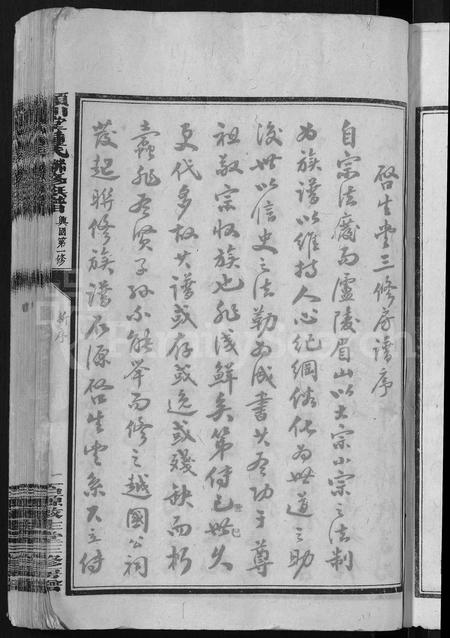 啓生堂三修房譜序
自宗法廢而盧陵眉山以大宗小宗之法制
為族譜以維持人心紀綱俗化為世道之助
後世以信史之法勒為成書其有功于尊
祖敬宗收族也非淺鮮矣第侍已世久
更代多故其譜或存或逸或殘缺而朽
蠹非有賢子孫不能舉而修之越國公祠
發起聯修族譜石源啓生堂系大立侍
興國第一修
新序
FamilySearch